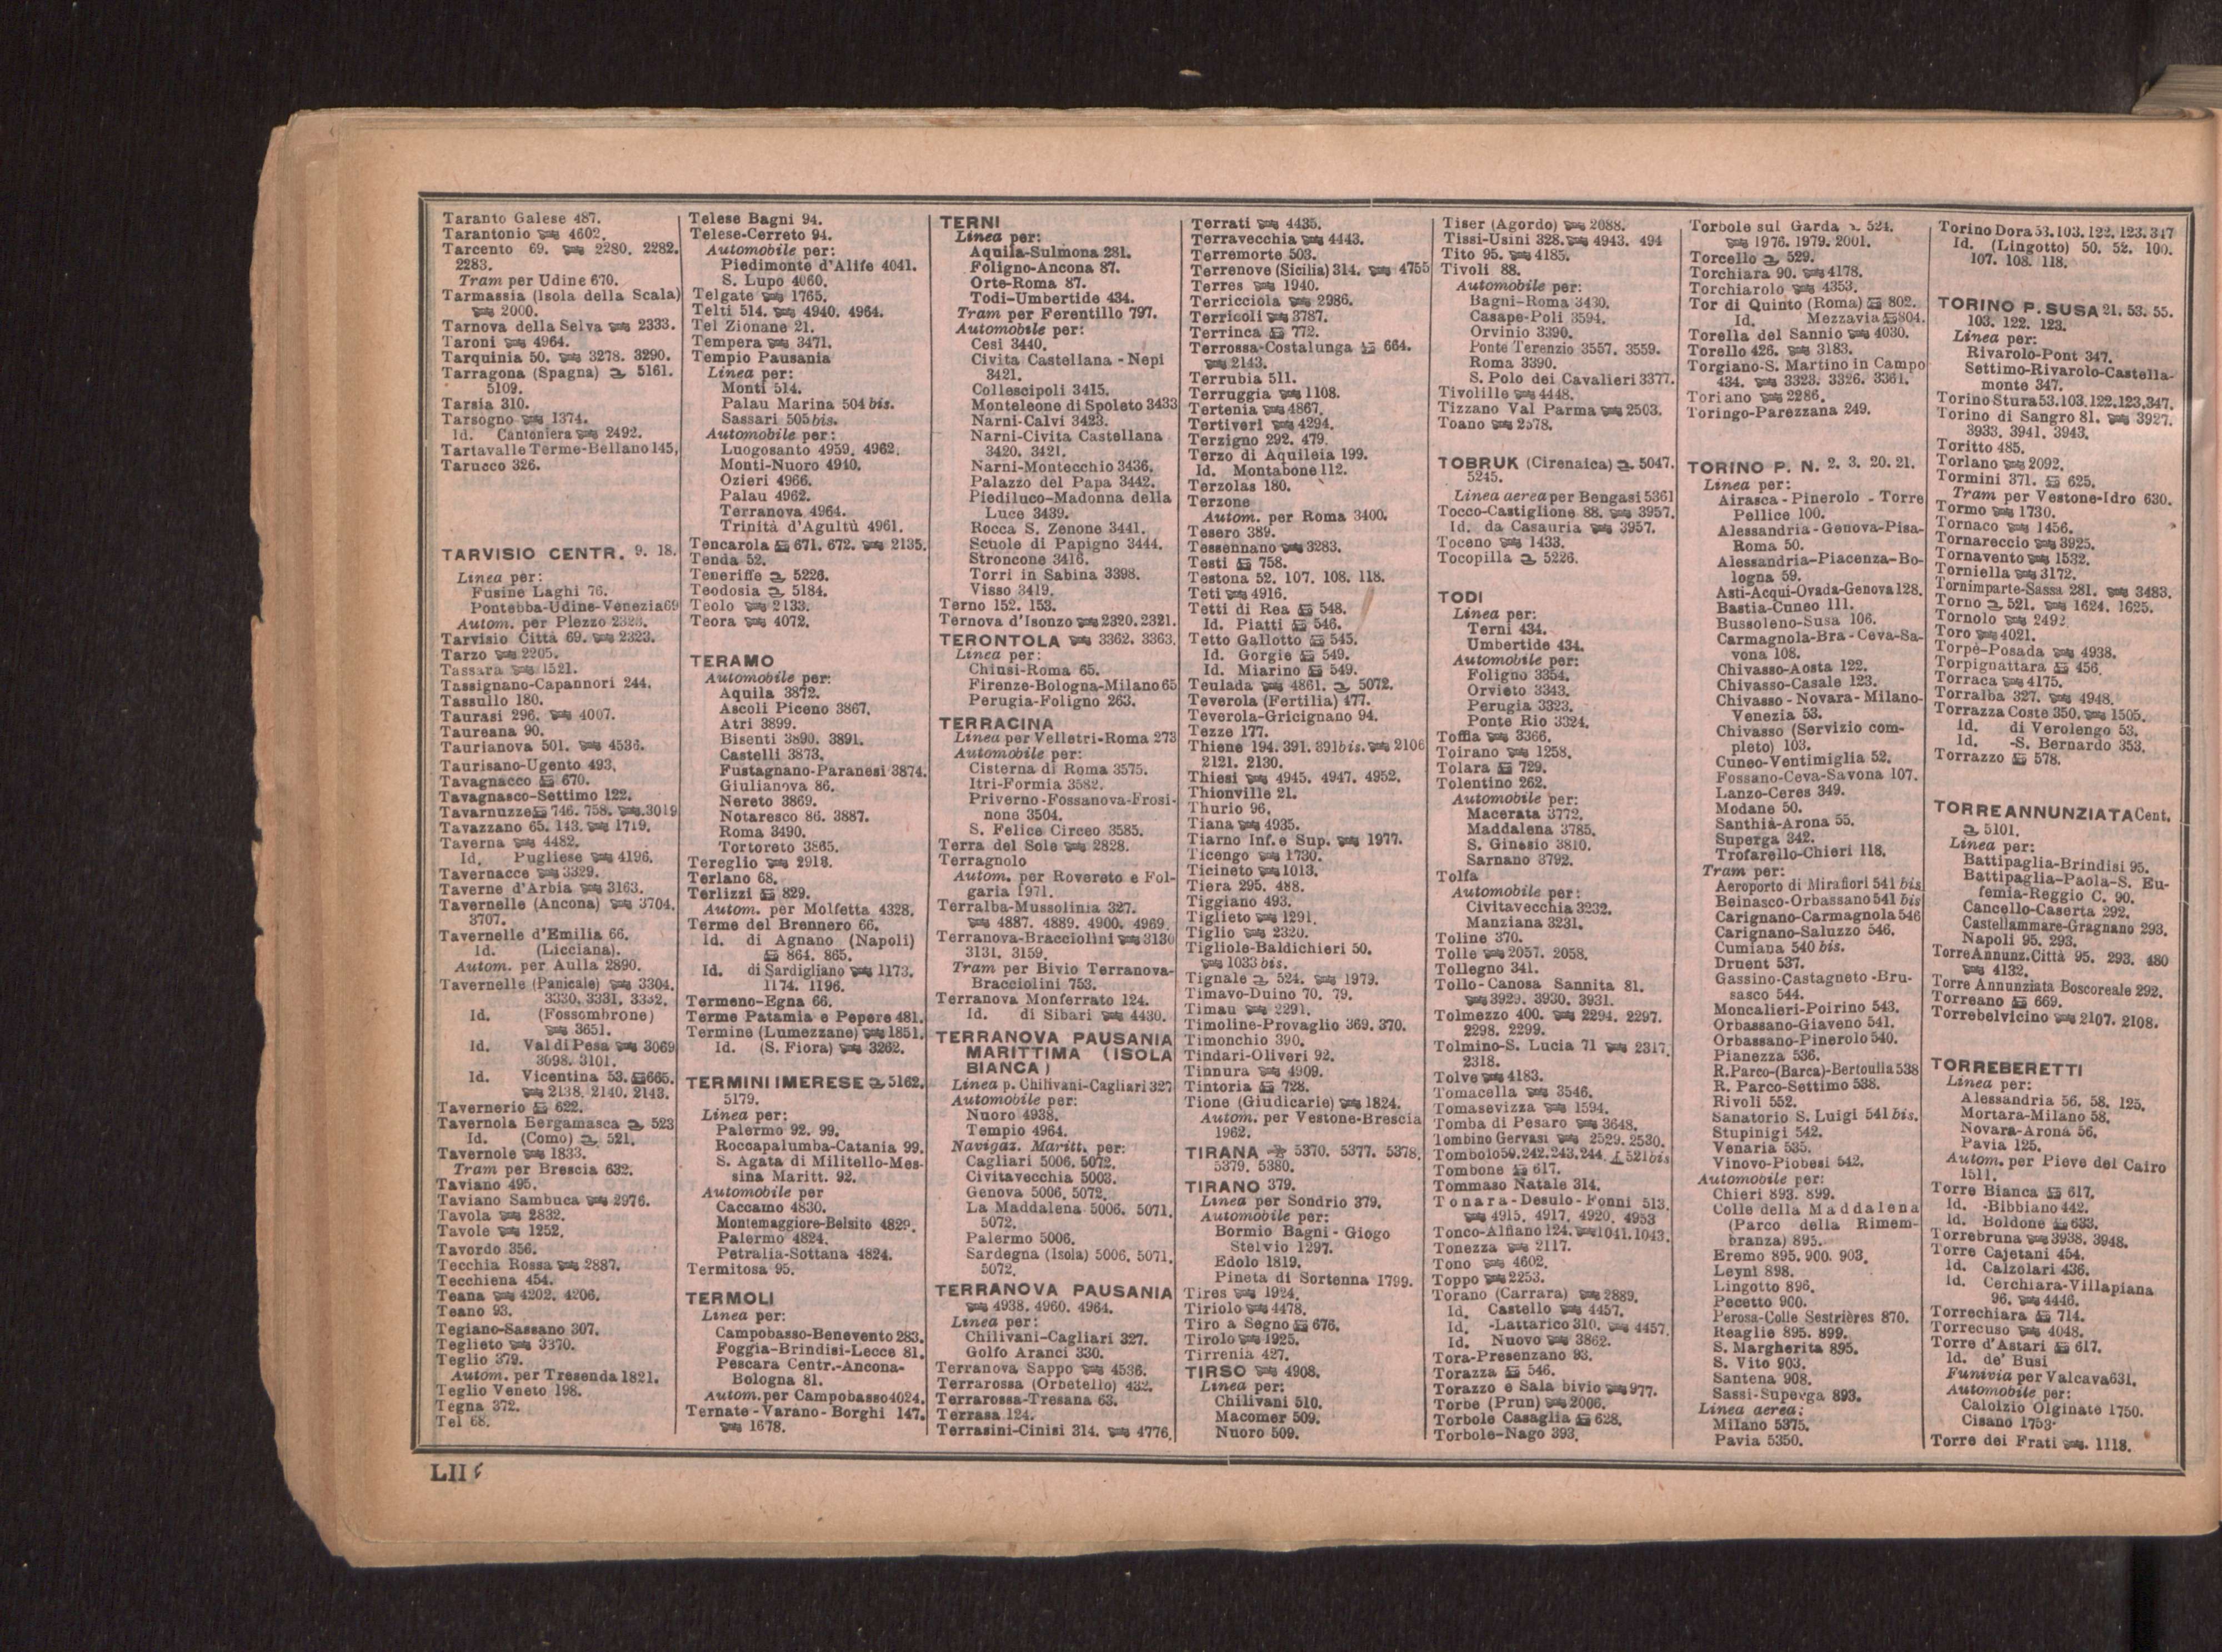 Taranto Galese 487.
Tarantonio 4602.
Tarcento 69. 2280. 2282.
2283.
Tram per Udine 670.
Tarmassia (Isola della Scala)
2000.
Tarnova della Selva 2333.
Taroni 4964.
Tarquinia 50. 3278. 3290.
Tarragona (Spagna) 5161.
5109.
Tarsia 310.
Tarsogno 1374.
Id. Cantoniera 2492.
Tartavalle Terme-Bellano 145,
Tarucco 326.
TARVISIO CENTR. 9. 18.
Linea per:
Fusine Laghi 76.
Pontebba-Udine-Venezia 69
Autom. per Plezzo 2323.
Tarvisio Città 69. 2323.
Tarzo 2205.
Tassara 1521.
Tassignano-Capannori 244.
Tassullo 180.
Taurasi 296. 4007.
Taureana 90.
Taurianova 501. 4536.
Taurisano-Ugento 493.
Tavagnacco 670.
Tavagnasco-Settimo 122.
Tavarnuzze 746. 758. 3019
Tavazzano 65. 143. 1719.
Taverna 4482.
Id. Pugliese 4196.
Tavernacce 3329.
Taverne d'Arbia 3163.
Tavernelle (Ancona) 3704.
3707.
Tavernelle d'Emilia 66.
Id. (Licciana).
Autom. per Aulla 2890.
Tavernelle (Panicale) 3304.
3330. 3331. 3332.
Id. (Fossombrone)
3651.
Id. Val di Pesa 3069
3098. 3101.
Id. Vicentina 53. 665.
2138. 2140. 2143.
Tavernerio 622.
Tavernola Bergamasca 523
Id. (Como) 521.
Tavernole 1833.
Tram per Brescia 632.
Taviano 495.
Taviano Sambuca 2976.
Tavola 2832.
Tavole 1252.
Tavordo 356.
Tecchia Rossa 2887.
Tecchiena 454.
Teana 4202. 4206.
Teano 93.
Tegiano-Sassano 307.
Teglieto 3370.
Teglio 379.
Autom. per Tresenda 1821.
Teglio Veneto 198.
Tegna 372.
Tel 68.
Telese Bagni 94.
Telese-Cerreto 94.
Automobile per:
Piedimonte d'Alife 4041.
S. Lupo 4060.
Telgate 1765.
Telti 514. 4940. 4964.
Tel Zionane 21.
Tempera 3471.
Tempio Pausania
Linea per:
Monti 514.
Palau Marina 504 bis.
Sassari 505 bis.
Automobile per:
Luogosanto 4959. 4962.
Monti-Nuoro 4940.
Ozieri 4966.
Palau 4962.
Terranova 4964.
Trinità d'Agultù 4961.
Tencarola 671. 672. 2135.
Tenda 52.
Teneriffe 5226.
Teodosia 5184.
Teolo 2133.
Teora 4072.
TERAMO
Automobile per:
Aquila 3872.
Ascoli Piceno 3867.
Atri 3899.
Bisenti 3890. 3891.
Castelli 3873.
Fustagnano-Paranesi 3874.
Giulianova 86.
Nereto 3869.
Notaresco 86. 3887.
Roma 3490.
Tortoreto 3865.
Tereglio 2918.
Terlano 68.
Terlizzi 829.
Autom. per Molfetta 4328.
Terme del Brennero 66.
Id. di Agnano (Napoli)
864. 865.
Id. di Sardigliano 1173.
1174. 1196.
Termeno-Egna 66.
Terme Patamia e Pepere 481.
Termine (Lumezzane) 1851.
Id. (S. Fiora) 3262.
TERMINI IMERESE 5162.
5179.
Linea per:
Palermo 92. 99.
Roccapalumba-Catania 99.
S. Agata di Militello-Mes-
sina Maritt. 92.
Automobile per
Caccamo 4830.
Montemaggiore-Belsito 4829.
Palermo 4824.
Petralia-Sottana 4824.
Termitosa 95.
TERMOLI
Linea per:
Campobasso-Benevento 283.
Foggia-Brindisi-Lecce 81.
Pescara Centr.-Ancona-
Bologna 81.
Autom. per Campobasso 4024.
Ternate-Varano-Borghi 147.
1678.
TERNI
Linea per:
Aquila-Sulmona 281.
Foligno-Ancona 87.
Orte-Roma 87.
Todi-Umbertide 434.
Tram per Ferentillo 797.
Automobile per:
Cesi 3440.
Civita Castellana - Nepi
3421.
Collescipoli 3415.
Monteleone di Spoleto 3433
Narni-Calvi 3423.
Narni-Civita Castellana
3420. 3421.
Narni-Montecchio 3436.
Palazzo del Papa 3442.
Piediluco-Madonna della
Luce 3439.
Rocca S. Zenone 3441.
Scuole di Papigno 3444.
Stroncone 3416.
Torri in Sabina 3398.
Visso 3419.
Terno 152. 153.
Ternova d'Isonzo 2320. 2321.
TERONTOLA 3362. 3363.
Linea per:
Chiusi-Roma 65.
Firenze-Bologna-Milano 65
Perugia-Foligno 263.
TERRACINA
Linea per Velletri-Roma 273
Automobile per:
Cisterna di Roma 3575.
Itri-Formia 3582.
Priverno-Fossanova-Frosi-
none 3504.
S. Felice Circeo 3585.
Terra del Sole 2828.
Terragnolo
Autom. per Rovereto e Fol-
garia 1971.
Terralba-Mussolinia 327.
4887. 4889. 4900. 4969.
Terranova-Bracciolini 3130
3131. 3159.
Tram per Bivio Terranova-
Bracciolini 753.
Terranova Monferrato 124.
Id. di Sibari 4430.
TERRANOVA PAUSANIA
MARITTIMA (ISOLA
BIANCA)
Linea p. Chilivani-Cagliari 327
Automobile per:
Nuoro 4938.
Tempio 4964.
Navigaz. Maritt. per:
Cagliari 5006. 5072.
Civitavecchia 5003.
Genova 5006. 5072.
La Maddalena 5006. 5071.
5072.
Palermo 5006.
Sardegna (Isola) 5006. 5071.
5072.
TERRANOVA PAUSANIA
4938. 4960. 4964.
Linea per:
Chilivani-Cagliari 327.
Golfo Aranci 330.
Terranova Sappo 4536.
Terrarossa (Orbetello) 432.
Terrarossa-Tresana 63.
Terrasa 124.
Terrasini-Cinisi 314. 4776.
Terrati 4435.
Terravecchia 4443.
Terremorte 503.
Terrenove (Sicilia) 314. 4755
Terres 1940.
Terricciola 2986.
Terricoli 3787.
Terrinca 772.
Terrossa-Costalunga 664.
2143.
Terrubia 511.
Terruggia 1108.
Tertenia 4867.
Tertiveri 4294.
Terzigno 292. 479.
Terzo di Aquileia 199.
Id. Montabone 112.
Terzolas 180.
Terzone
Autom. per Roma 3400.
Tesero 389.
Tessennano 3283.
Testi 758.
Testona 52. 107. 108. 118.
Teti 4916.
Tetti di Rea 548.
Id. Piatti 546.
Tetto Gallotto 545.
Id. Gorgie 549.
Id. Miarino 549.
Teulada 4861. 5072.
Teverola (Fertilia) 477.
Teverola-Gricignano 94.
Tezze 177.
Thiene 194. 391. 391 bis. 2106
2121. 2130.
Thiesi 4945. 4947. 4952.
Thionville 21.
Thurio 96.
Tiana 4935.
Tiarno Inf. e Sup. 1977.
Ticengo 1730.
Ticineto 1013.
Tiera 295. 488.
Tiggiano 493.
Tiglieto 1291.
Tiglio 2320.
Tigliole-Baldichieri 50.
1033 bis.
Tignale 524. 1979.
Timavo-Duino 70. 79.
Timau 2291.
Timoline-Provaglio 369. 370.
Timonchio 390.
Tindari-Oliveri 92.
Tinnura 4909.
Tintoria 728.
Tione (Giudicarie) 1824.
Autom. per Vestone-Brescia
1962.
TIRANA 5370. 5377. 5378.
5379. 5380.
TIRANO 379.
Linea per Sondrio 379.
Automobile per:
Bormio Bagni - Giogo
Stelvio 1297.
Edolo 1819.
Pineta di Sortenna 1799.
Tires 1924.
Tiriolo 4478.
Tiro a Segno 676.
Tirolo 1925.
Tirrenia 427.
TIRSO 4908.
Linea per:
Chilivani 510.
Macomer 509.
Nuoro 509.
Tiser (Agordo) 2088.
Tissi-Usini 328. 4943. 494
Tito 95. 4185.
Tivoli 88.
Automobile per:
Bagni-Roma 3430.
Casape-Poli 3594.
Orvinio 3390.
Ponte Terenzio 3557. 3559.
Roma 3390.
S. Polo dei Cavalieri 3377.
Tivolille 4448.
Tizzano Val Parma 2503.
Toano 2578.
TOBRUK (Cirenaica) 5047.
5245.
Linea aerea per Bengasi 5361
Tocco-Castiglione 88. 3957.
Id. da Casauria 3957.
Toceno 1433.
Tocopilla 5226.
TODI
Linea per:
Terni 434.
Umbertide 434.
Automobile per:
Foligno 3354.
Orvieto 3343.
Perugia 3323.
Ponte Rio 3324.
Toffia 3366.
Toirano 1258.
Tolara 729.
Tolentino 262.
Automobile per:
Macerata 3772.
Maddalena 3785.
S. Ginesio 3810.
Sarnano 3792.
Tolfa
Automobile per:
Civitavecchia 3232.
Manziana 3231.
Toline 370.
Tolle 2057. 2058.
Tollegno 341.
Tollo-Canosa Sannita 81.
3929. 3930. 3931.
Tolmezzo 400. 2294. 2297.
2298. 2299.
Tolmino-S. Lucia 71 2317.
2318.
Tolve 4183.
Tomacella 3546.
Tomasevizza 1594.
Tomba di Pesaro 3648.
Tombino Gervasi 2529. 2530.
Tombolo 50. 242. 243. 244. 521 bis
Tombone 617.
Tommaso Natale 314.
Tonara-Desulo-Fonni 513.
4915. 4917. 4920. 4953
Tonco-Alfiano 124. 1041. 1043.
Tonezza 2117.
Tono 4602.
Toppo 2253.
Torano (Carrara) 2889.
Id. Castello 4457.
Id. -Lattarico 310. 4457.
Id. Nuovo 3862.
Tora-Presenzano 93.
Torazza 546.
Torazzo e Sala bivio 977.
Torbe (Prun) 2006.
Torbole Casaglia 628.
Torbole-Nago 393.
Torbole sul Garda 524.
1976. 1979. 2001.
Torcello 529.
Torchiara 90. 4178.
Torchiarolo 4353.
Tor di Quinto (Roma) 802.
Id. Mezzavia 804.
Torella del Sannio 4030.
Torello 426. 3183.
Torgiano-S. Martino in Campo
434. 3323. 3326. 3361.
Toriano 2286.
Toringo-Parezzana 249.
TORINO P. N. 2. 3. 20. 21.
Linea per:
Airasca - Pinerolo - Torre
Pellice 100.
Alessandria-Genova-Pisa-
Roma 50.
Alessandria-Piacenza-Bo-
logna 59.
Asti-Acqui-Ovada-Genova 128.
Bastia-Cuneo 111.
Bussoleno-Susa 106.
Carmagnola-Bra-Ceva-Sa-
vona 108.
Chivasso-Aosta 122.
Chivasso-Casale 123.
Chivasso-Novara-Milano-
Venezia 53.
Chivasso (Servizio com-
pleto) 103.
Cuneo-Ventimiglia 52.
Fossano-Ceva-Savona 107.
Lanzo-Ceres 349.
Modane 50.
Santhià-Arona 55.
Superga 342.
Trofarello-Chieri 118.
Tram per:
Aeroporto di Mirafiori 541 bis
Beinasco-Orbassano 541 bis
Carignano-Carmagnola 546
Carignano-Saluzzo 546.
Cumiana 540 bis.
Druent 537.
Gassino-Castagneto-Bru-
sasco 544.
Moncalieri-Poirino 543.
Orbassano-Giaveno 541.
Orbassano-Pinerolo 540.
Pianezza 536.
R. Parco-(Barca)-Bertoulla 538
R. Parco-Settimo 538.
Rivoli 552.
Sanatorio S. Luigi 541 bis.
Stupinigi 542.
Venaria 535.
Vinovo-Piobesi 542.
Automobile per:
Chieri 893. 899.
Colle della Maddalena
(Parco della Rimem-
branza) 895.
Eremo 895. 900. 903.
Leynì 898.
Lingotto 896.
Pecetto 900.
Perosa-Colle Sestrières 870.
Reaglie 895. 899.
S. Margherita 895.
S. Vito 903.
Santena 908.
Sassi-Superga 893.
Linea aerea:
Milano 5375.
Pavia 5350.
Torino Dora 53. 103. 122. 123. 347
Id. (Lingotto) 50. 52. 100.
107. 108. 118.
TORINO P. SUSA 21. 53. 55.
103. 122. 123.
Linea per:
Rivarolo-Pont 347.
Settimo-Rivarolo-Castella-
monte 347.
Torino Stura 53. 103. 122. 123. 347.
Torino di Sangro 81. 3927.
3933. 3941. 3943.
Toritto 485.
Torlano 2092.
Tormini 371. 625.
Tram per Vestone-Idro 630.
Tormo 1730.
Tornaco 1456.
Tornareccio 3925.
Tornavento 1532.
Torniella 3172.
Tornimparte-Sassa 281. 3483.
Torno 521. 1624. 1625.
Tornolo 2492
Toro 4021.
Torpè-Posada 4938.
Torpignattara 456
Torraca 4175.
Torralba 327. 4948.
Torrazza Coste 350. 1505.
Id. di Verolengo 53.
Id. -S. Bernardo 353.
Torrazzo 578.
TORRE ANNUNZIATA Cent.
5101.
Linea per:
Battipaglia-Brindisi 95.
Battipaglia-Paola-S. Eu-
femia-Reggio C. 90.
Cancello-Caserta 292.
Castellammare-Gragnano 293.
Napoli 95. 293.
Torre Annunz. Città 95. 293. 480
4132.
Torre Annunziata Boscoreale 292.
Torreano 669.
Torrebelvicino 2107. 2108.
TORREBERETTI
Linea per:
Alessandria 56. 58. 125.
Mortara-Milano 58.
Novara-Arona 56.
Pavia 125.
Autom. per Pieve del Cairo
1511.
Torre Bianca 617.
Id. -Bibbiano 442.
Id. Boldone 633.
Torrebruna 3938. 3948.
Torre Cajetani 454.
Id. Calzolari 436.
Id. Cerchiara-Villapiana
96. 4446.
Torrechiara 714.
Torrecuso 4048.
Torre d'Astari 617.
Id. de' Busi
Funivia per Valcava 631.
Automobile per:
Calolzio Olginate 1750.
Cisano 1753.
Torre dei Frati 1118.
LII